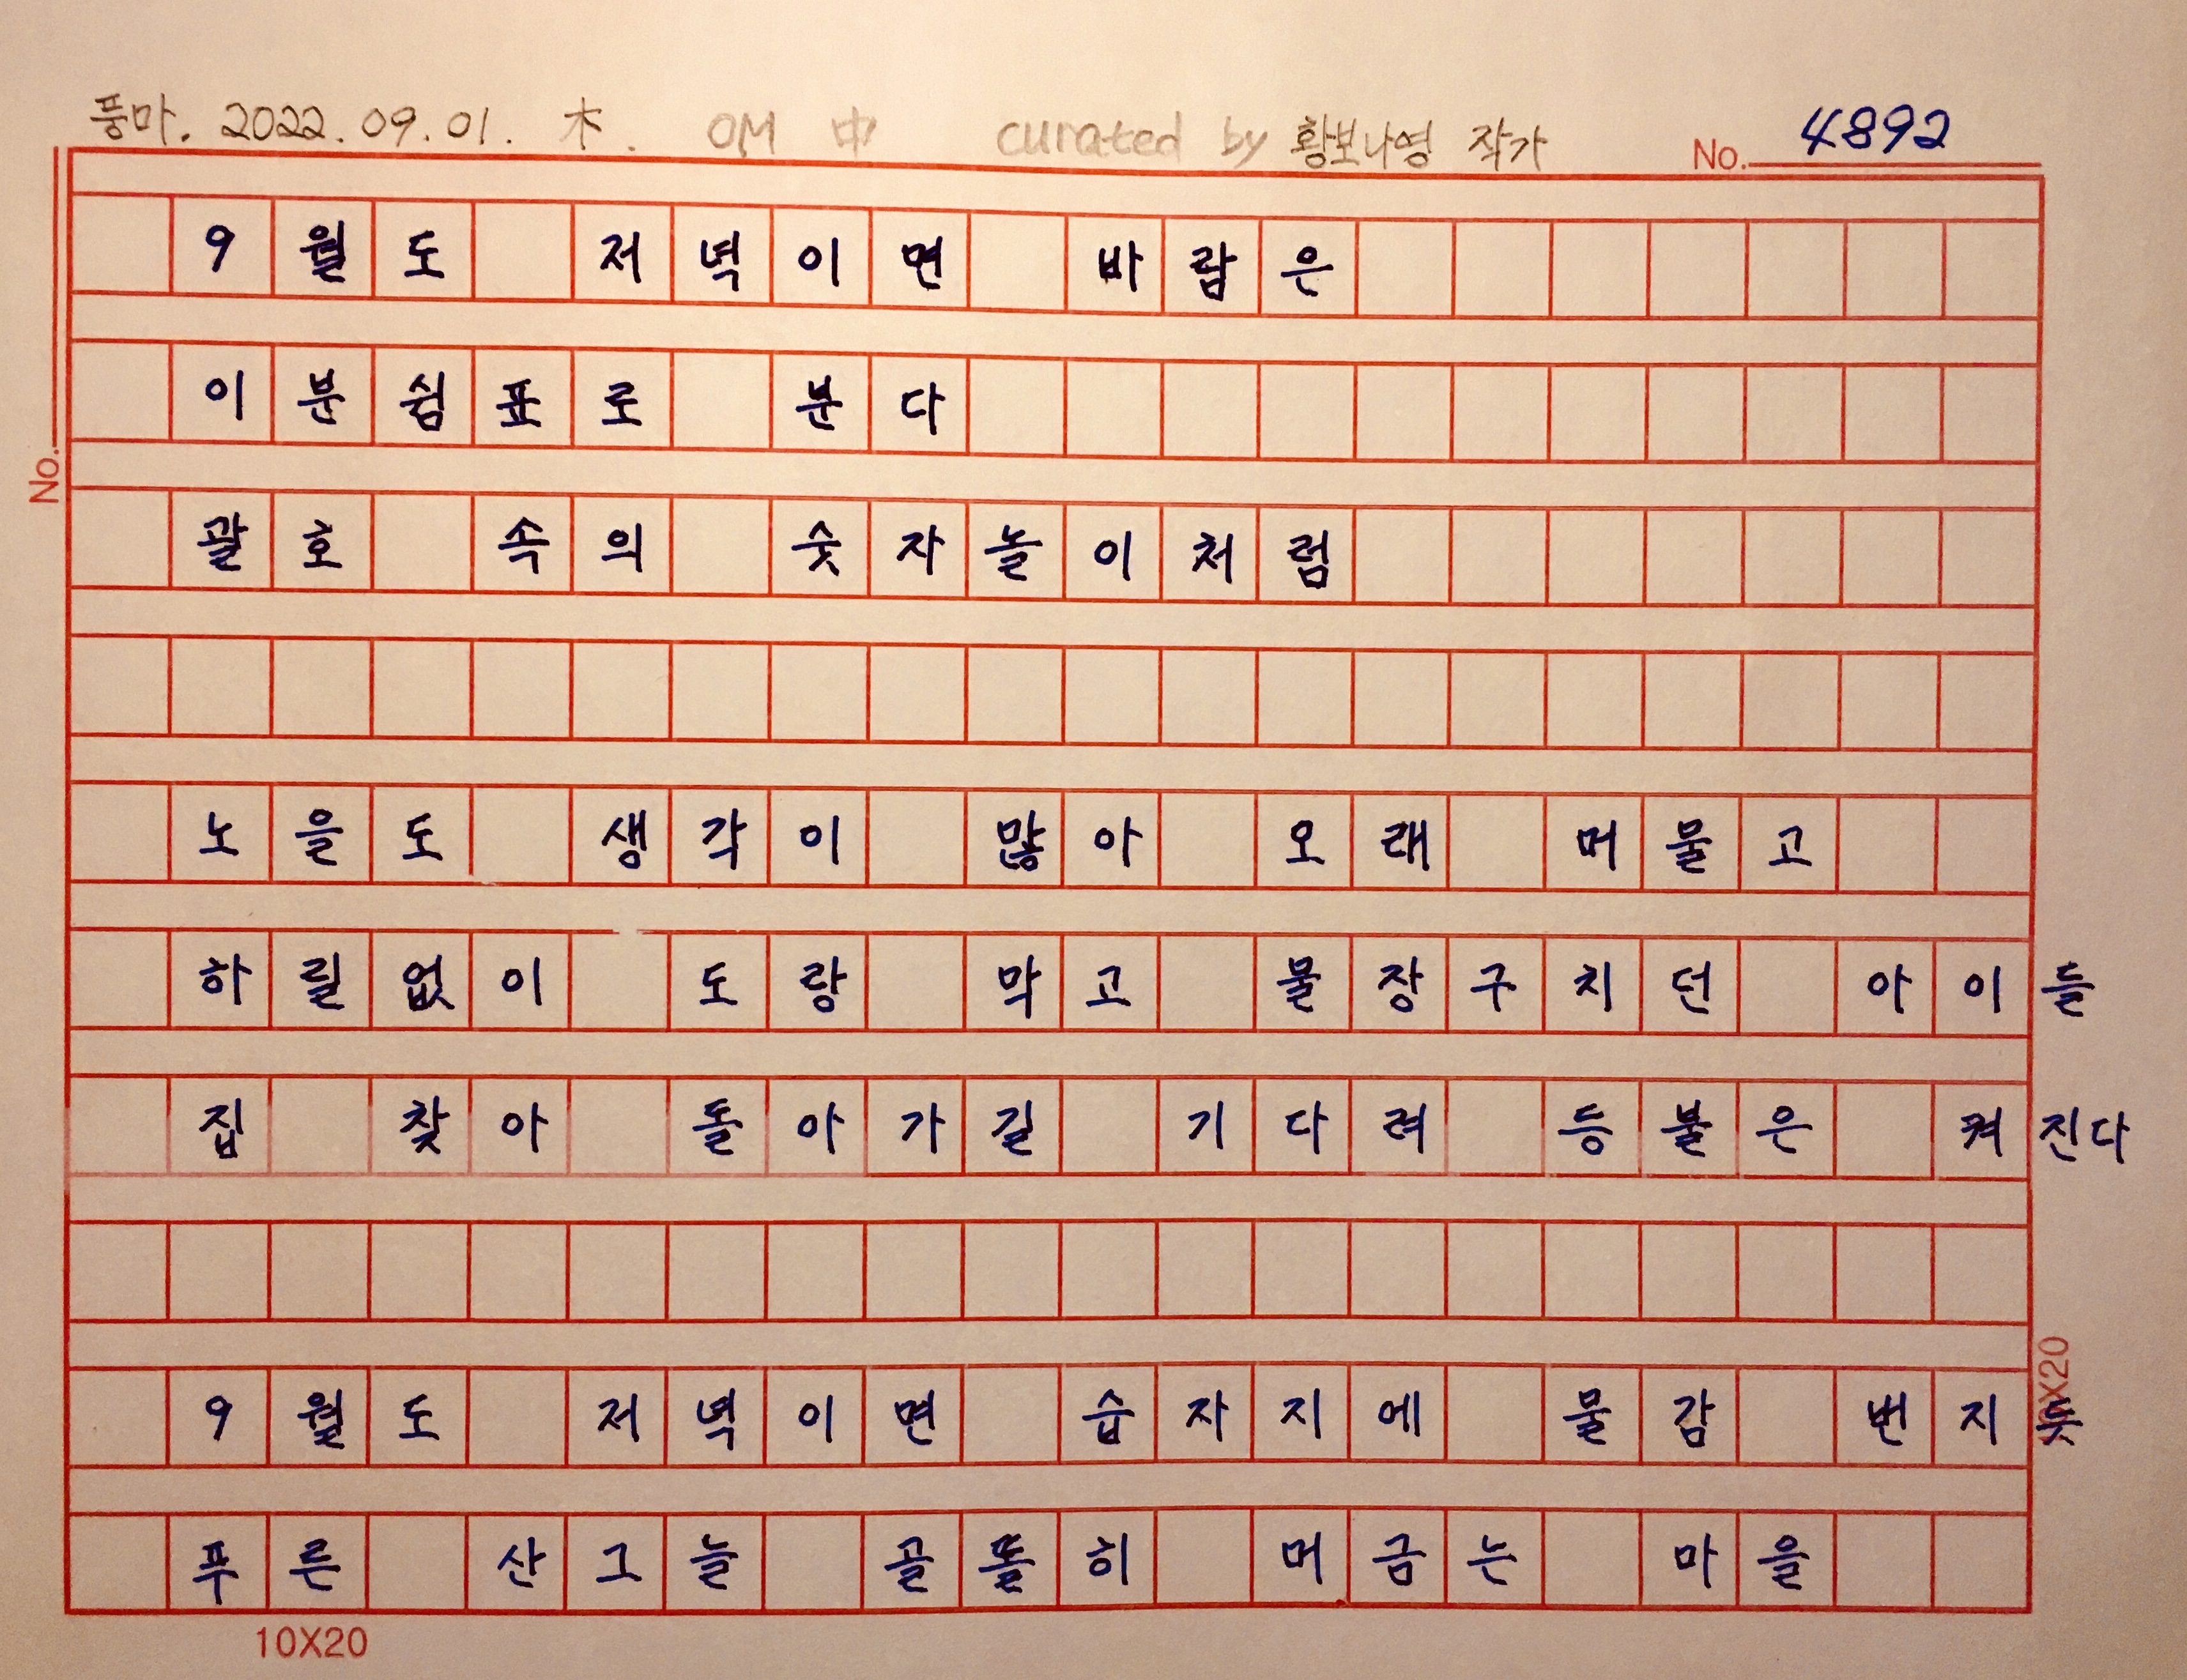 풍마. 2022.09.01. 木. OM 中 curated by 황보나영 작가 No. 4892
9월도 저녁이면 바람은
이분쉼표로 분다
괄호 속의 숫자놀이처럼
노을도 생각이 많아 오래 머물고
하릴없이 도랑 막고 물장구치던 아이들
집 찾아 돌아가길 기다려 등불은 켜진다
9월도 저녁이면 습자지에 물감 번지듯
푸른 산그늘 골똘히 머금는 마을
10X20
No.
10X20